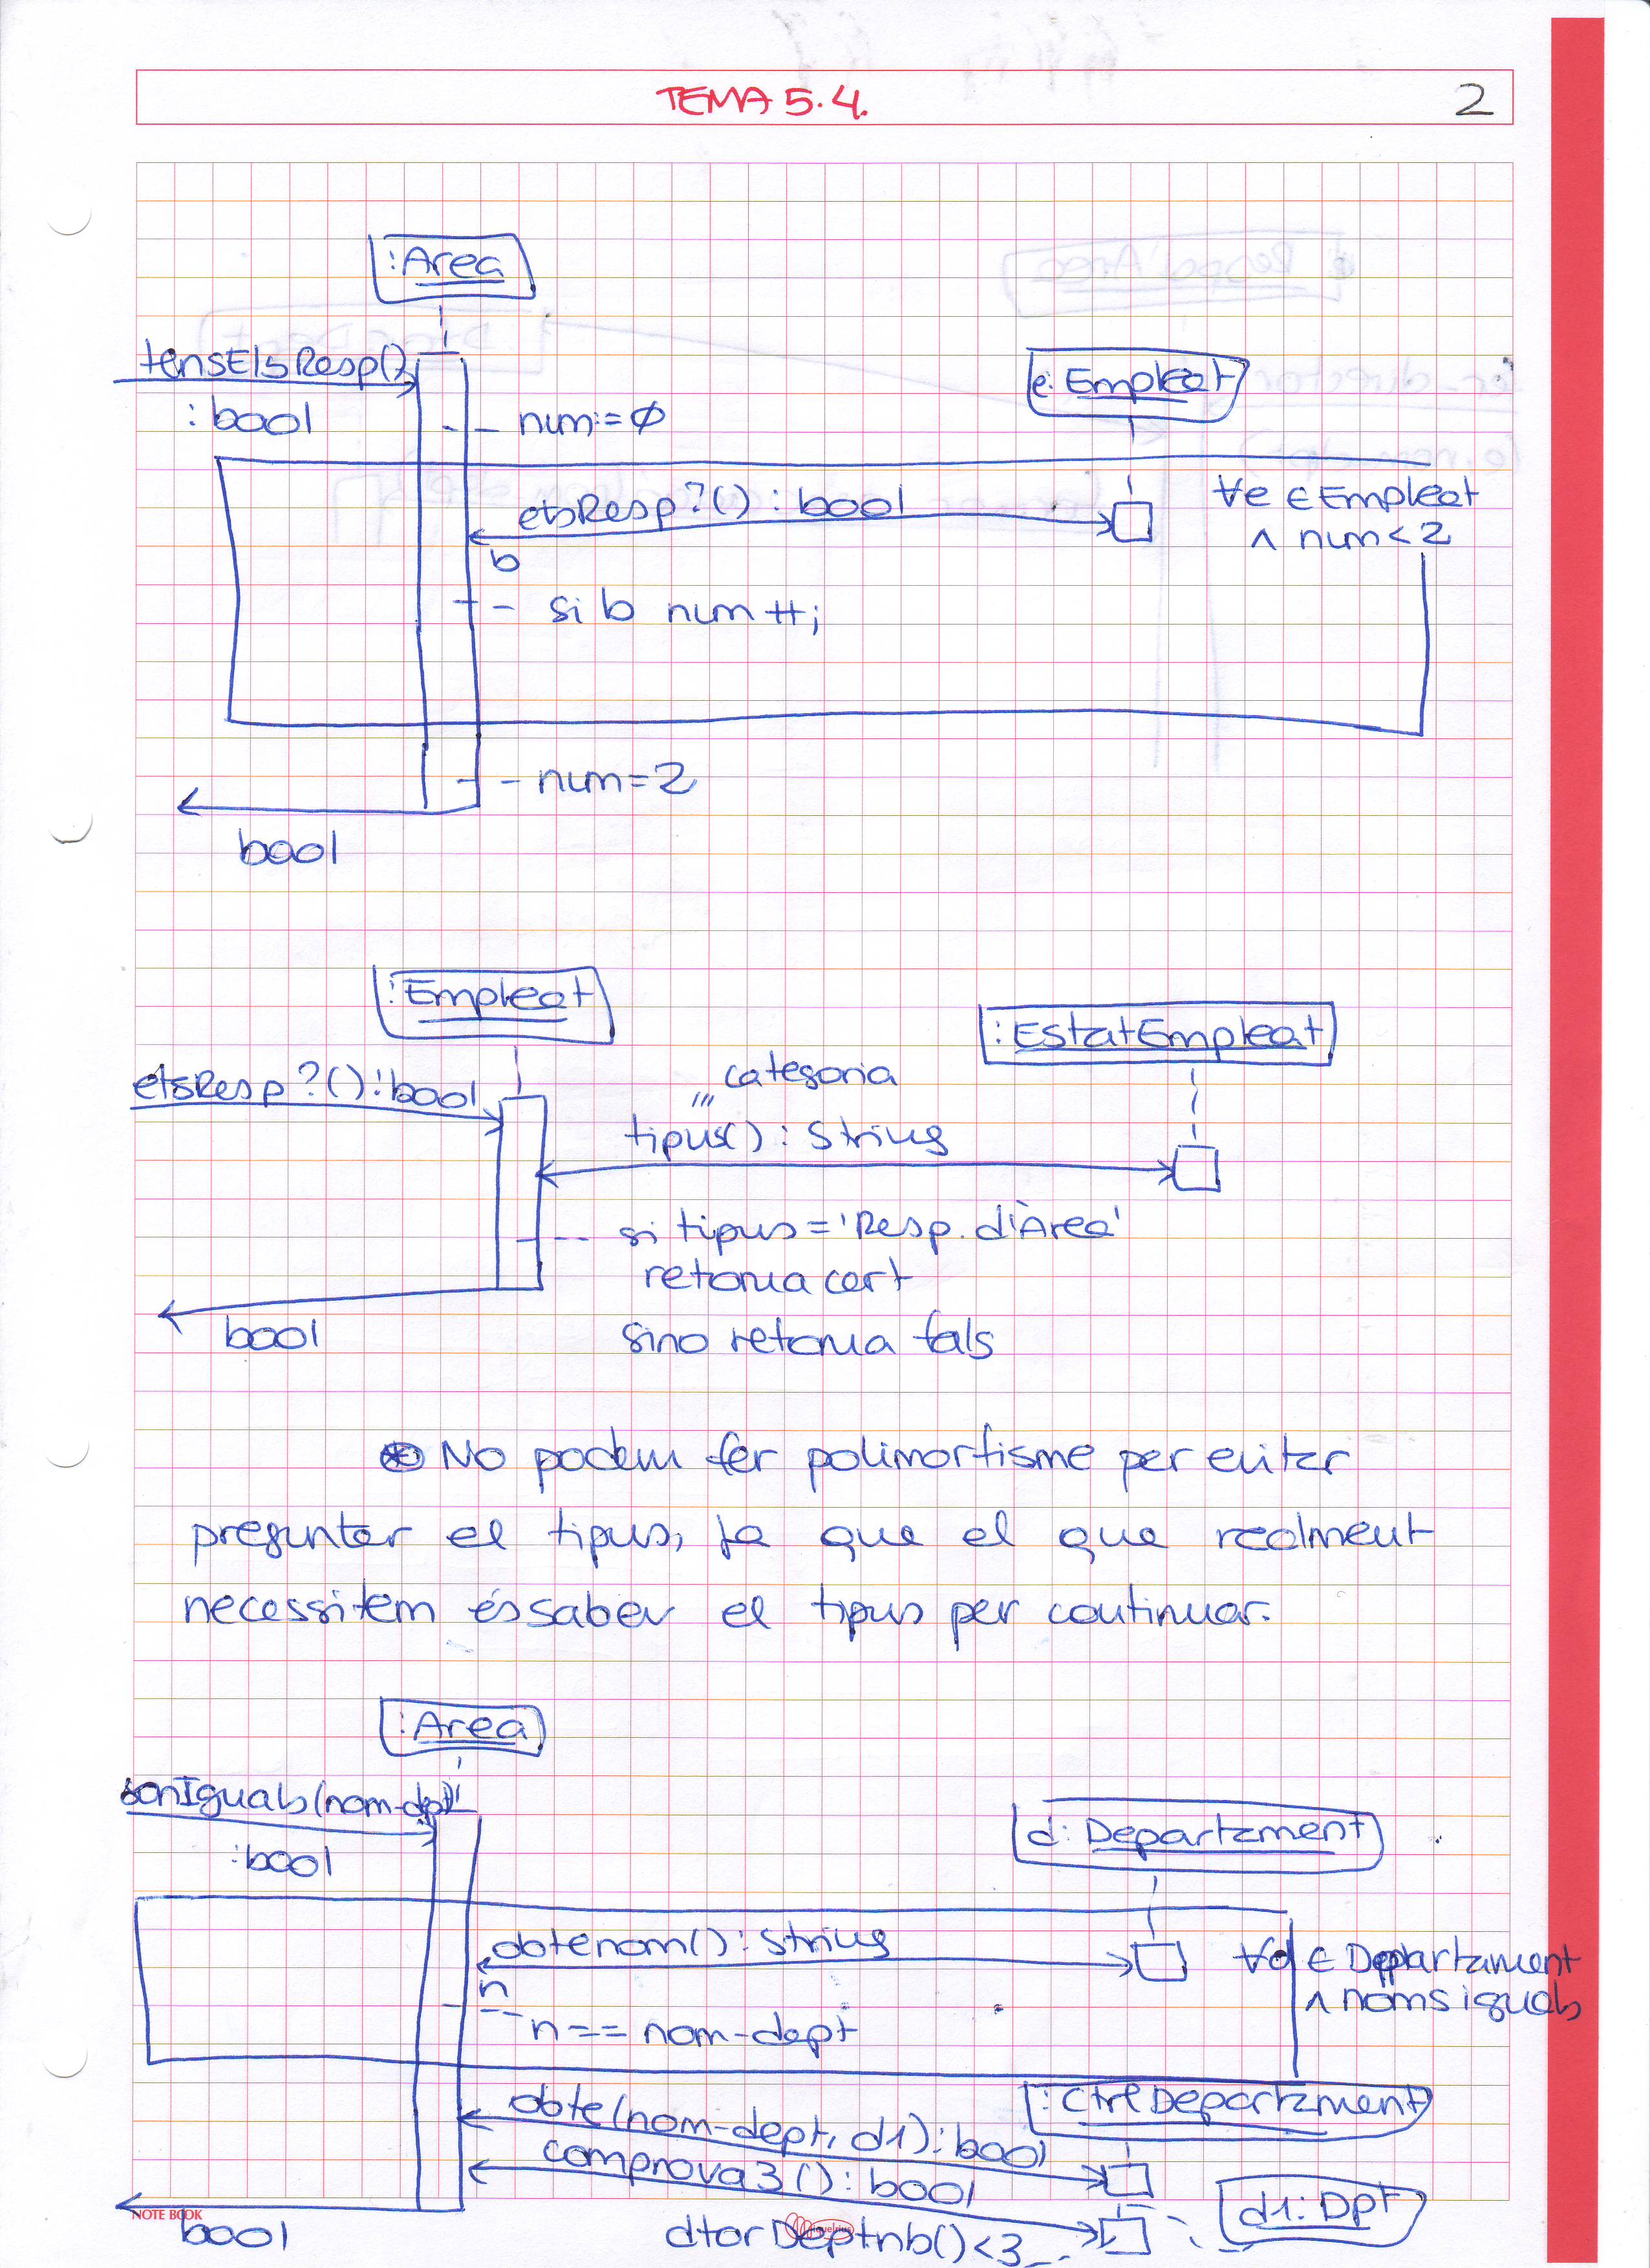 TEMA 5.4.
2
:Area
tensElsResp()
: bool
e: Empleat
num:=Ø
etsResp?() : bool
∀e ∈ Empleat
∧ num < 2
b
si b num++;
num=2
bool
:Empleat
:EstatEmpleat
etsResp?():bool
categoria
tipus() : String
si tipus = 'Resp. d'Àrea'
retorna cert
sino retorna fals
bool
⊛ No podem fer polimorfisme per evitar
preguntar el tipus, ja que el que realment
necessitem és saber el tipus per continuar.
:Area
sonIguals(nom-dpt)
:bool
d: Departament
obtenom() : String
∀d ∈ Departament
∧ noms iguals
n
n == nom-dept
:CtrlDepartament
obte(nom-dept, d1): bool
comprova3() : bool
d1: Dpt
dtorDeptnb() < 3
bool
NOTE BOOK